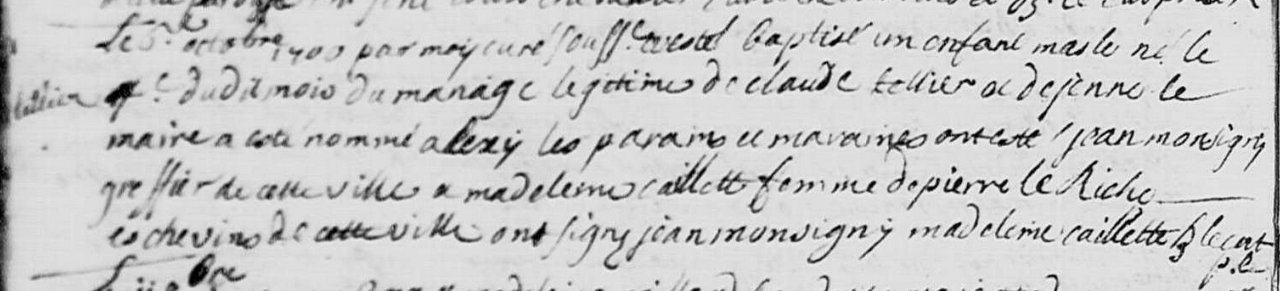 Le 5e octobre 1700 par moy curé souss.e a esté baptisé un enfant masle né le
tellier 4e. dudit mois du mariage legitime de claude tellier et de jenne le
maire a esté nommé alexy les parains et maraines ont esté jean monsigny
greffier de cette ville et madeleine caillette femme de pierre le Riche
eschevins de cette ville ont signy jean monsigny madeleine caillette